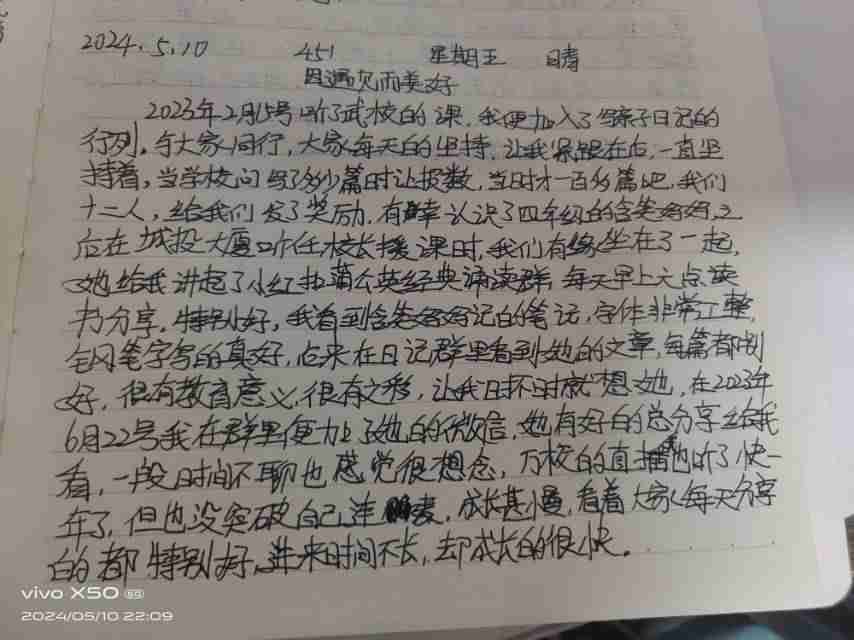 2024.5.10 451 星期五 晴
因遇见而美好
2023年2月15号听了武校的课,我便加入了写亲子日记的
行列,与大家同行,大家每天的坚持,让我紧跟在后,一直坚
持着,当学校问写了多少篇时让报数,当时才一百多篇吧,我们
十二人,给我们发了奖励,有幸认识了四年级的含笑妈妈,之
后在城投大厦听任校长授课时,我们有缘坐在了一起,
她给我讲起了小红书蒲公英经典诵读群,每天早上六点读
书分享,特别好,我看到含笑妈妈记的笔记,字体非常工整,
钢笔字写的真好,后来在日记群里看到她的文章,每篇都特别
好,很有教育意义,很有文彩,让我时不时就想她,在2023年
6月22号我在群里便加上了她的微信,她有好的总分享给我
看,一段时间不聊也感觉很想念,万校的直播也听了快一
年了,但也没突破自己连麦,成长甚慢,看着大家每天分享
的都特别好,进来时间不长,却成长的很快。
vivo X50 5G
2024/05/10 22:09